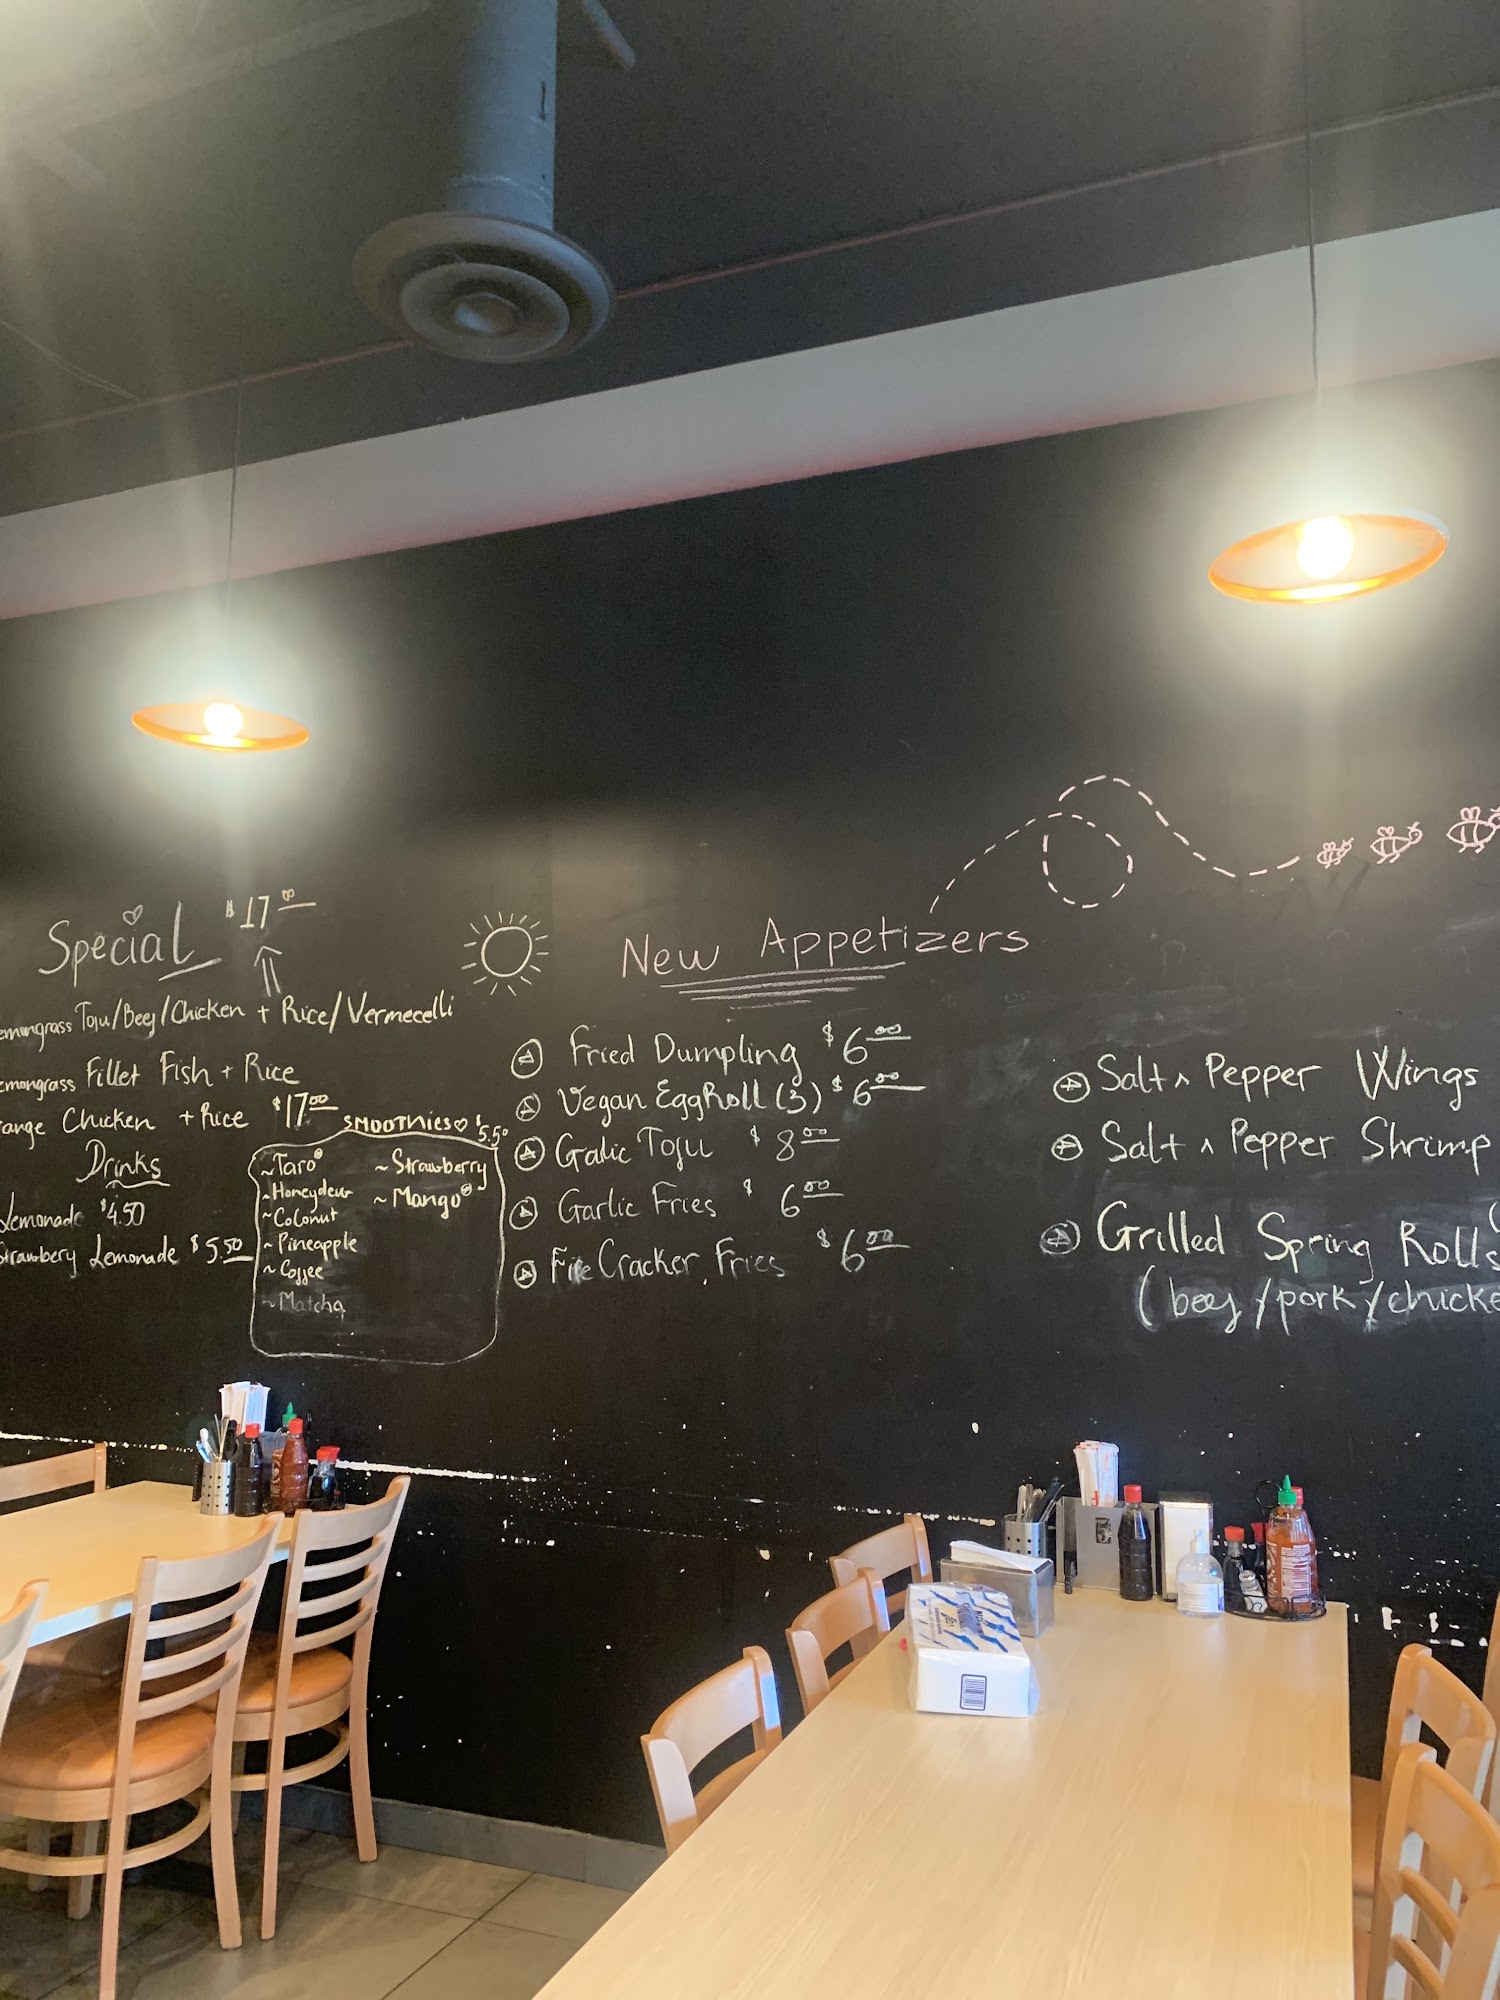 Special $17.00
emongrass Tofu/Beef/Chicken + Rice/Vermecelli
emongrass Fillet Fish + Rice
range Chicken + Rice $17.00
Drinks
Lemonade $4.50
Strawbery Lemonade $5.50
SMOOTHIES $5.50
~Taro
~Honeydew
~Coconut
~Pineapple
~Coffee
~Matcha
~Strawberry
~Mango
New Appetizers
Fried Dumpling $6.00
Vegan EggRoll (3) $6.00
Galic Tofu $8.00
Garlic Fries $6.00
Fire Cracker Fries $6.00
Salt ^ Pepper Wings
Salt ^ Pepper Shrimp
Grilled Spring Rolls
(beef/pork/chicke
5